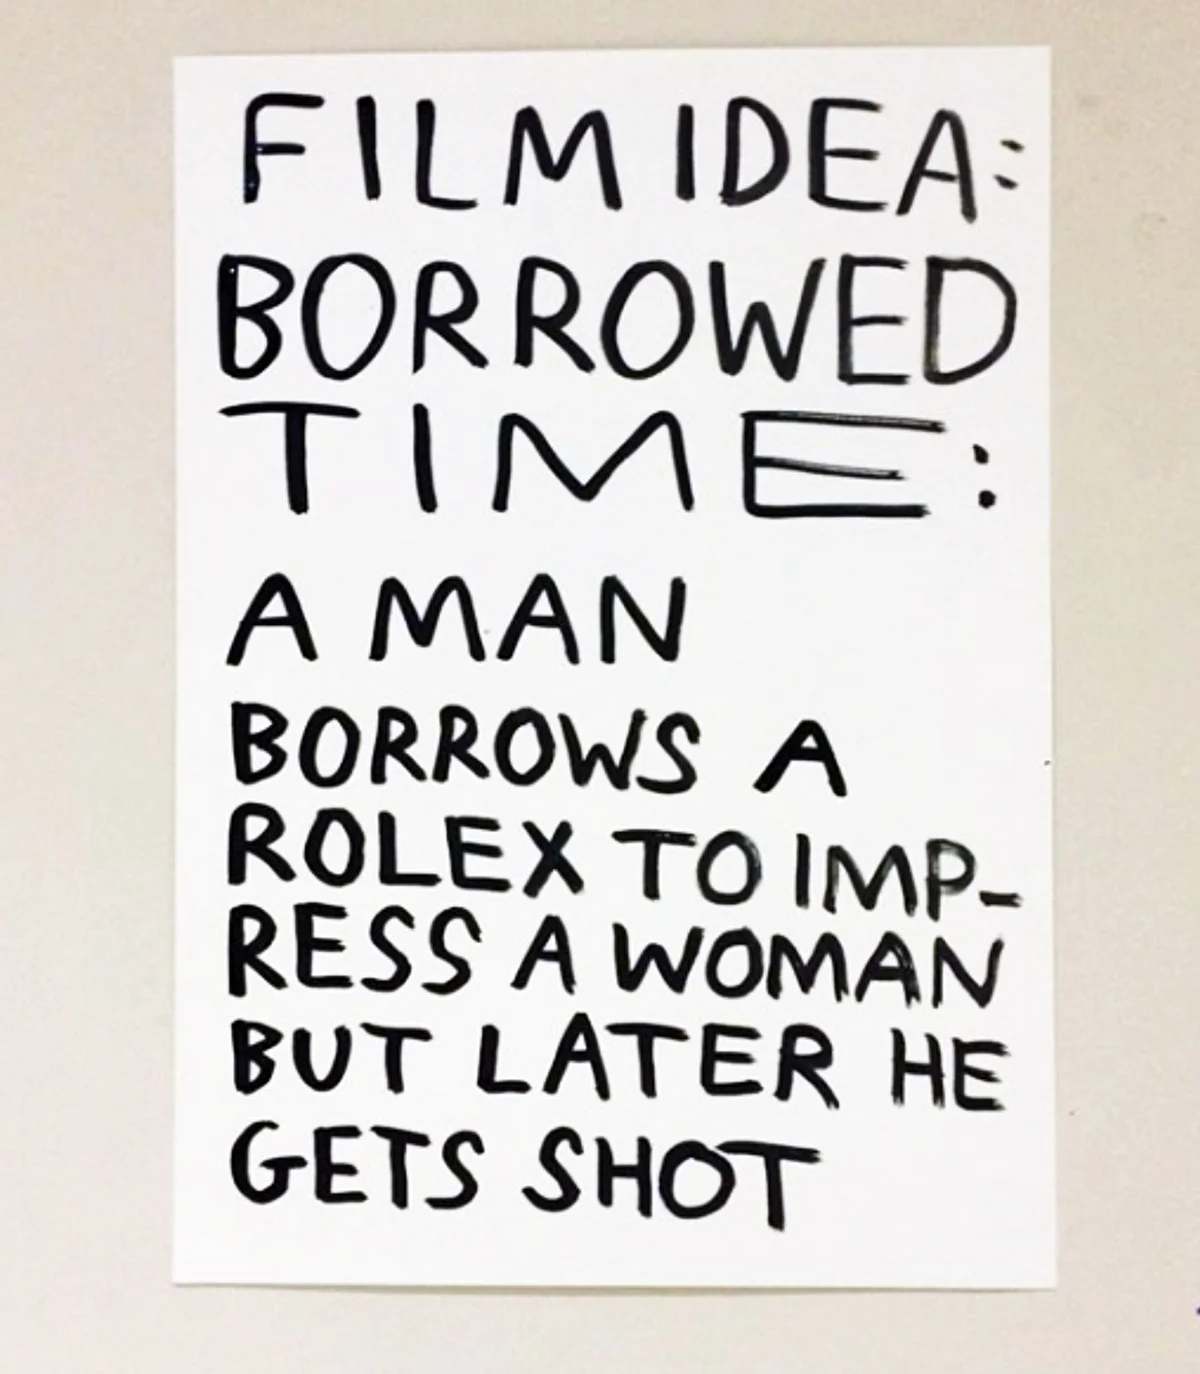 FILM IDEA:
BORROWED
TIME:
A MAN
BORROWS A
ROLEX TO IMP-
RESS A WOMAN
BUT LATER HE
GETS SHOT